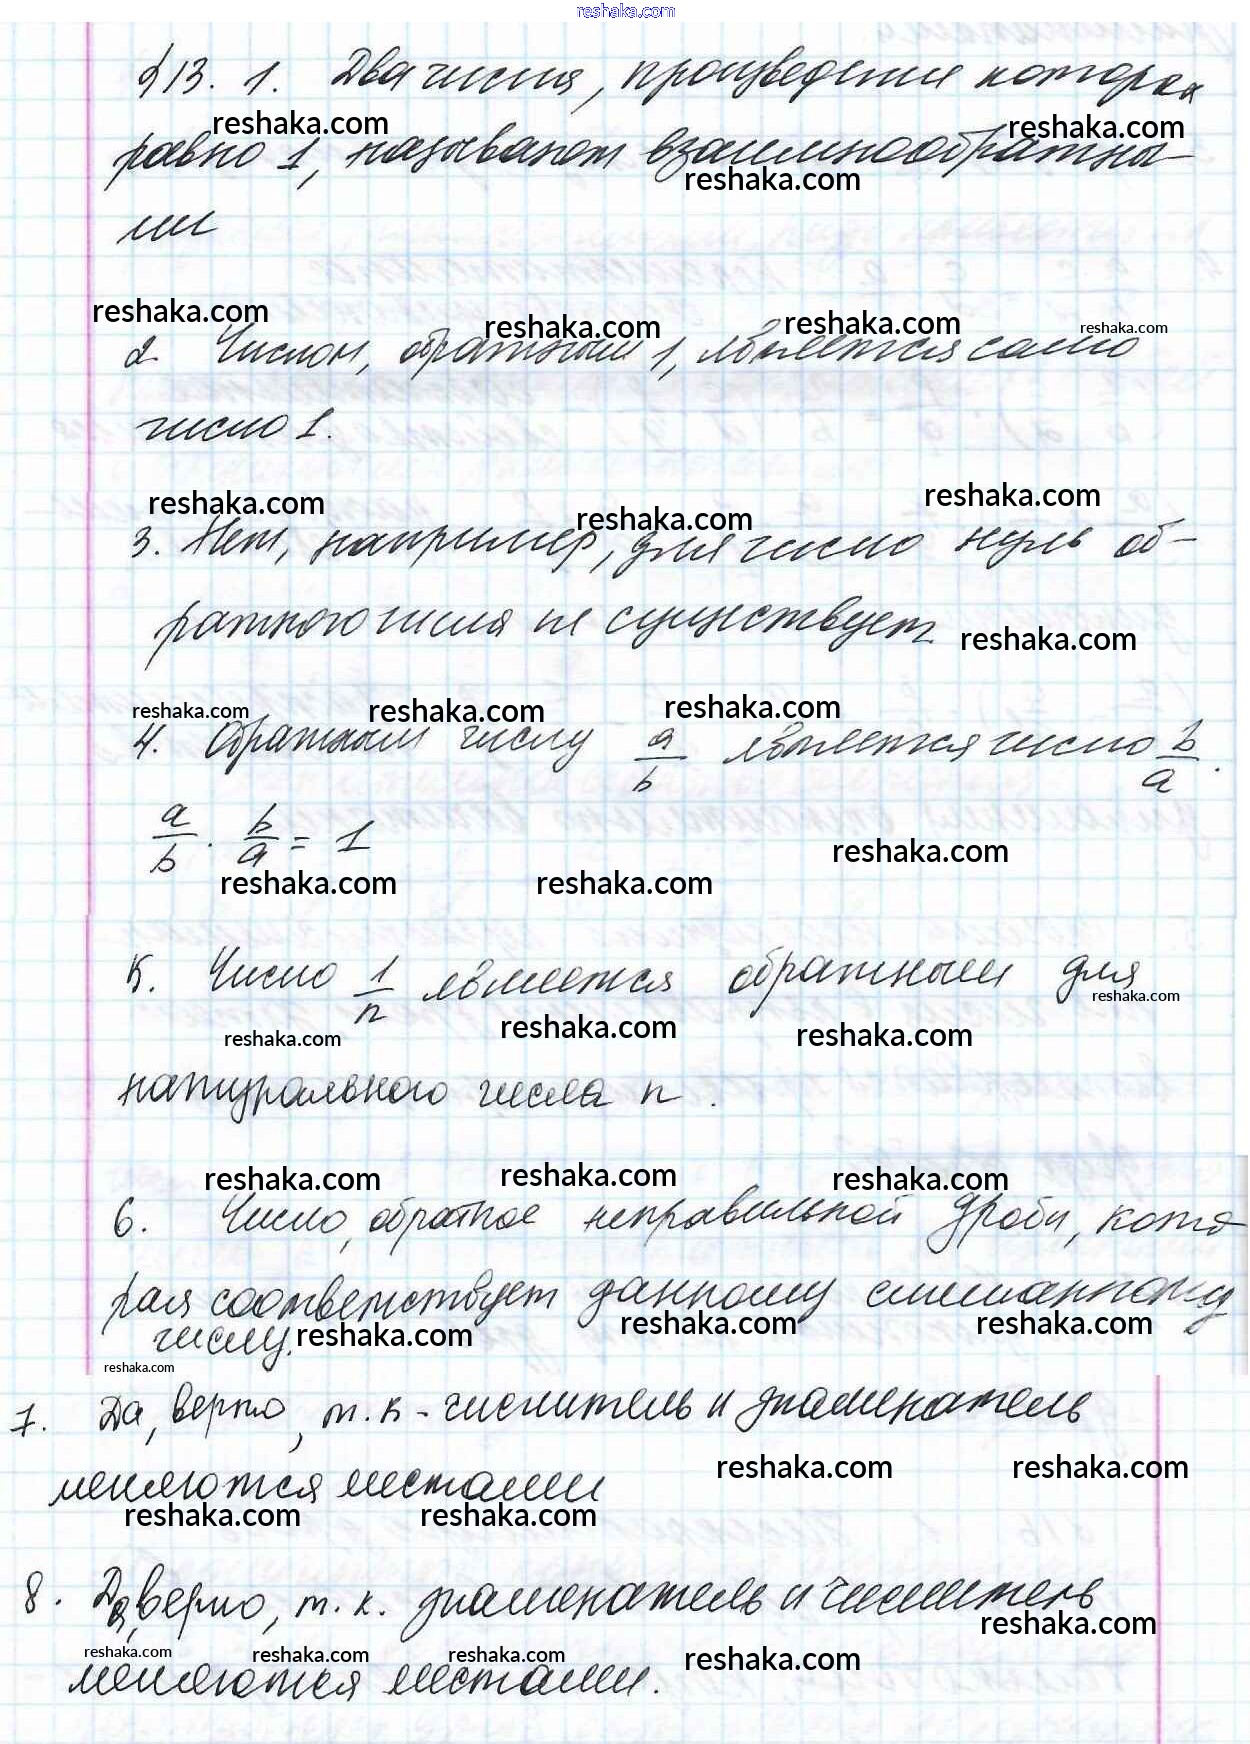 reshaka.com
§ 13. 1. Два числа, произведение которых
reshaka.com reshaka.com
равно 1, называют взаимнообратны-
reshaka.com
ми
reshaka.com reshaka.com reshaka.com reshaka.com
2 Числом, обратным 1, является само
число 1.
reshaka.com reshaka.com reshaka.com
3. Нет, например, для число нуль об-
ратного числа не существует
reshaka.com
reshaka.com reshaka.com reshaka.com
4. Обратным числу a/b является число b/a.
a/b · b/a = 1
reshaka.com
reshaka.com reshaka.com
5. Число 1/n является обратным для
reshaka.com
reshaka.com reshaka.com reshaka.com
натурального числа n.
reshaka.com reshaka.com reshaka.com
6. Число, обратное неправильной дроби, кото
рая соответствует данному смешанному
reshaka.com reshaka.com
числу. reshaka.com
reshaka.com
7. Да, верно, т.к - числитель и знаменатель
reshaka.com reshaka.com
меняются местами
reshaka.com reshaka.com
8. Да, верно, т.к. знаменатель и числитель
reshaka.com
reshaka.com reshaka.com reshaka.com reshaka.com
меняются местами.